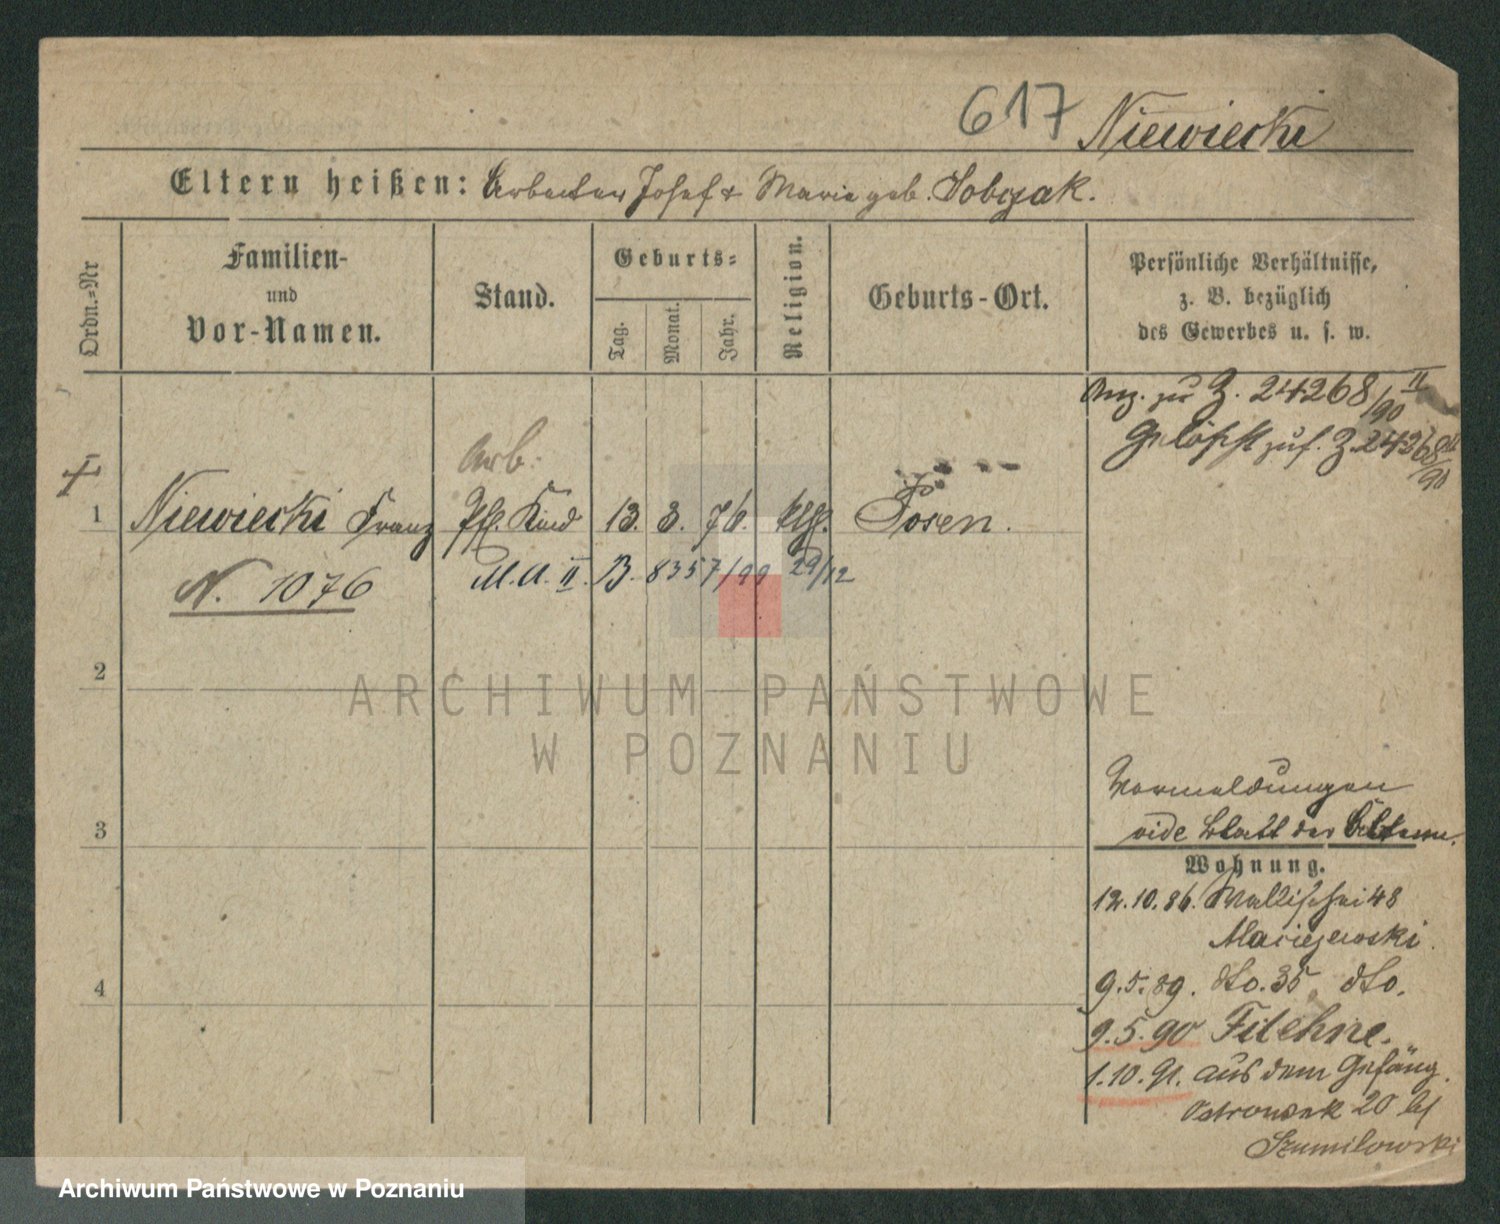 617 Niewiecki
Eltern heißen: Arbeiter Josef & Marie geb. Sobczak.
Ordn.=Nr
Familien-
und
Vor-Namen.
Stand.
Geburts=
Tag.
Monat.
Jahr.
Religion.
Geburts-Ort.
Persönliche Verhältnisse,
z. B. bezüglich
des Gewerbes u. s. w.
Anz. zu Z. 24268/90 II
Gelöscht zuf. Z. 24268/90
Arb.
1 Niewiecki Franz Pfl. Kind 13. 3. 76. kth. Posen.
N. 1076
M. A. II. B. 8357/99 29/12
2
3
4
Vormeldungen
vide Blatt der Eltern.
Wohnung.
12.10.86. Wallischei 48
Maciejewski.
9.5.89. dto. 35 dto.
9.5.90 Filehne.
1.10.91. aus dem Gefäng.
Ostrowek 20 bei
Szumilowski
ARCHIWUM PAŃSTWOWE
W POZNANIU
Archiwum Państwowe w Poznaniu